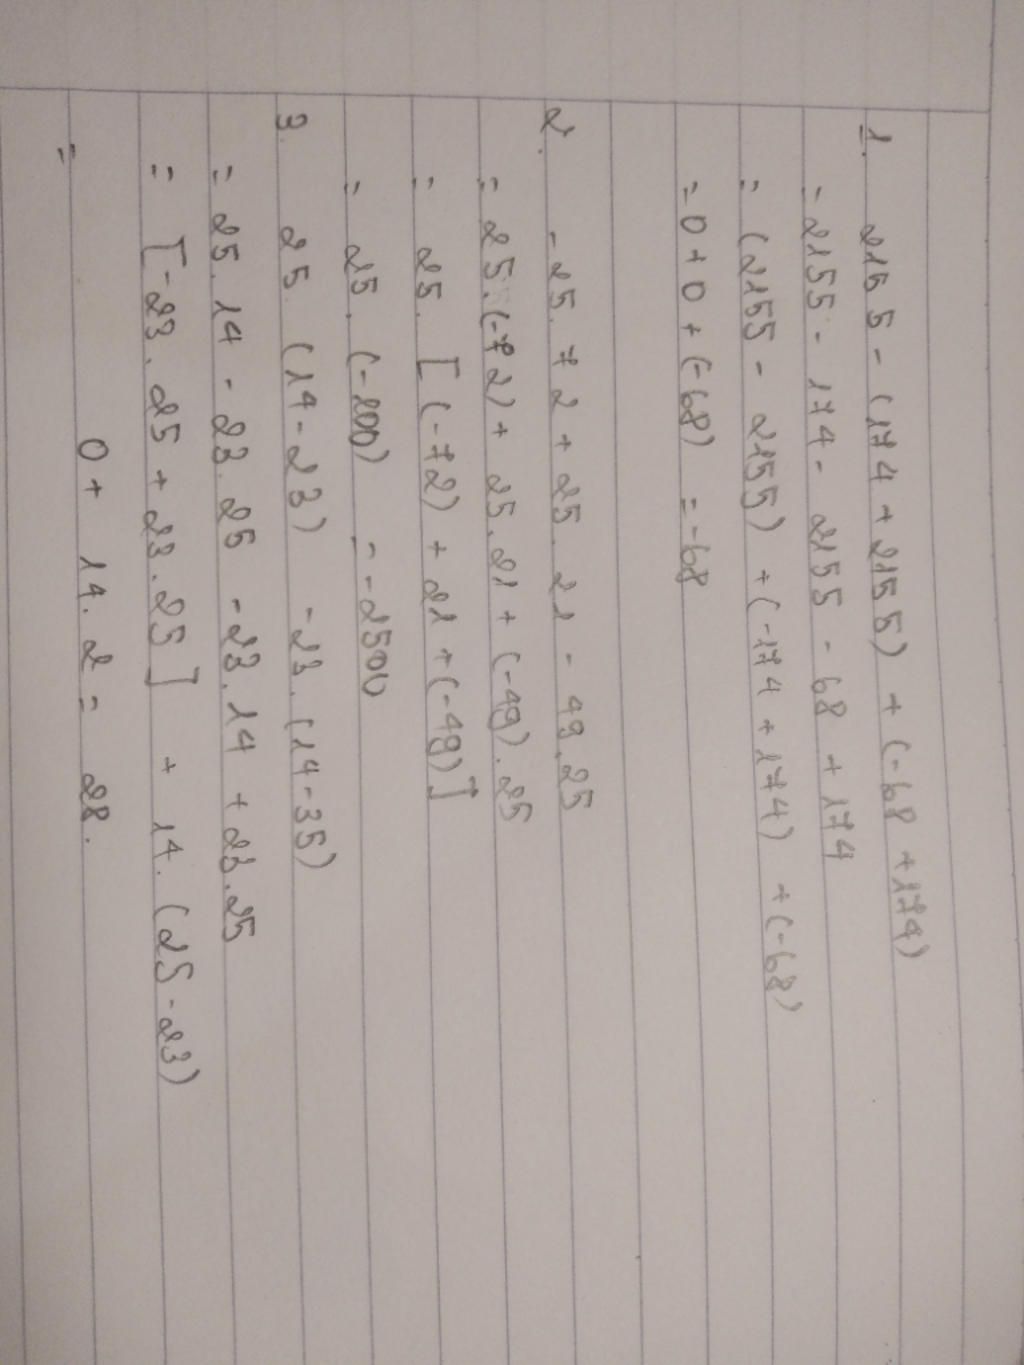 1. 2155 - (174 + 2155) + (-68 + 174)
= 2155 - 174 - 2155 - 68 + 174
= (2155 - 2155) + (-174 + 174) + (-68)
= 0 + 0 + (-68) = -68
2. -25.72 + 25.21 - 49.25
= 25.(-72) + 25.21 + (-49).25
= 25. [(-72) + 21 + (-49)]
= 25. (-100) = -2500
3. 25. (14 - 23) - 23. (14 - 35)
= 25.14 - 23.25 - 23.14 + 23.25
= [-23.25 + 23.25] + 14. (25 - 23)
= 0 + 14.2 = 28.